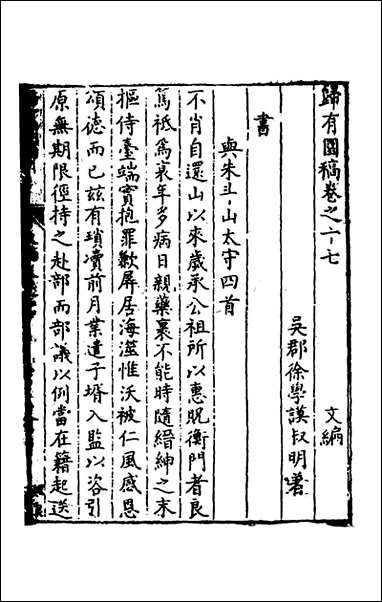 歸有園稿卷之十七　文編
吳郡徐學謨叔明著
書
與朱斗山太守四首
不肖自還山以來歲承公祖所以惠貺衡門者良
篤祗為衰年多病日親藥裹不能時隨縉紳之末
樞侍臺端實抱罪歉屏居海澨惟沃被仁風感恩
頌德而已茲有瑣凟前月業遣子壻入監以咨引
原無期限徑持之赴部而部議以例當在籍起送